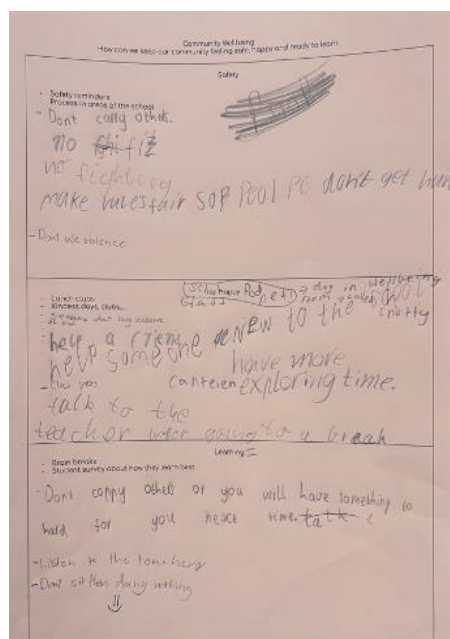 Community Wellbeing
How can we keep our community feeling safe, happy and ready to learn.
Safety
- Safety reminders
- Process in areas of the school
- Dont copy others.
no
no fighting
make rules fair SOP PEOl PC dont get hur
- Dont use violence
- Lunch clubs
- Kindess days, clubs...
help a
help someone NEW TO the
have more
canteien exploring time.
talk to the
teachor after going to a break
Learning =
- Brain breaks
- Student survey about how they learn best
- Dont coppy others or you will have something to
hard for you nexct time.
- Listen to the teachers
- Dont sit ther doing nothing